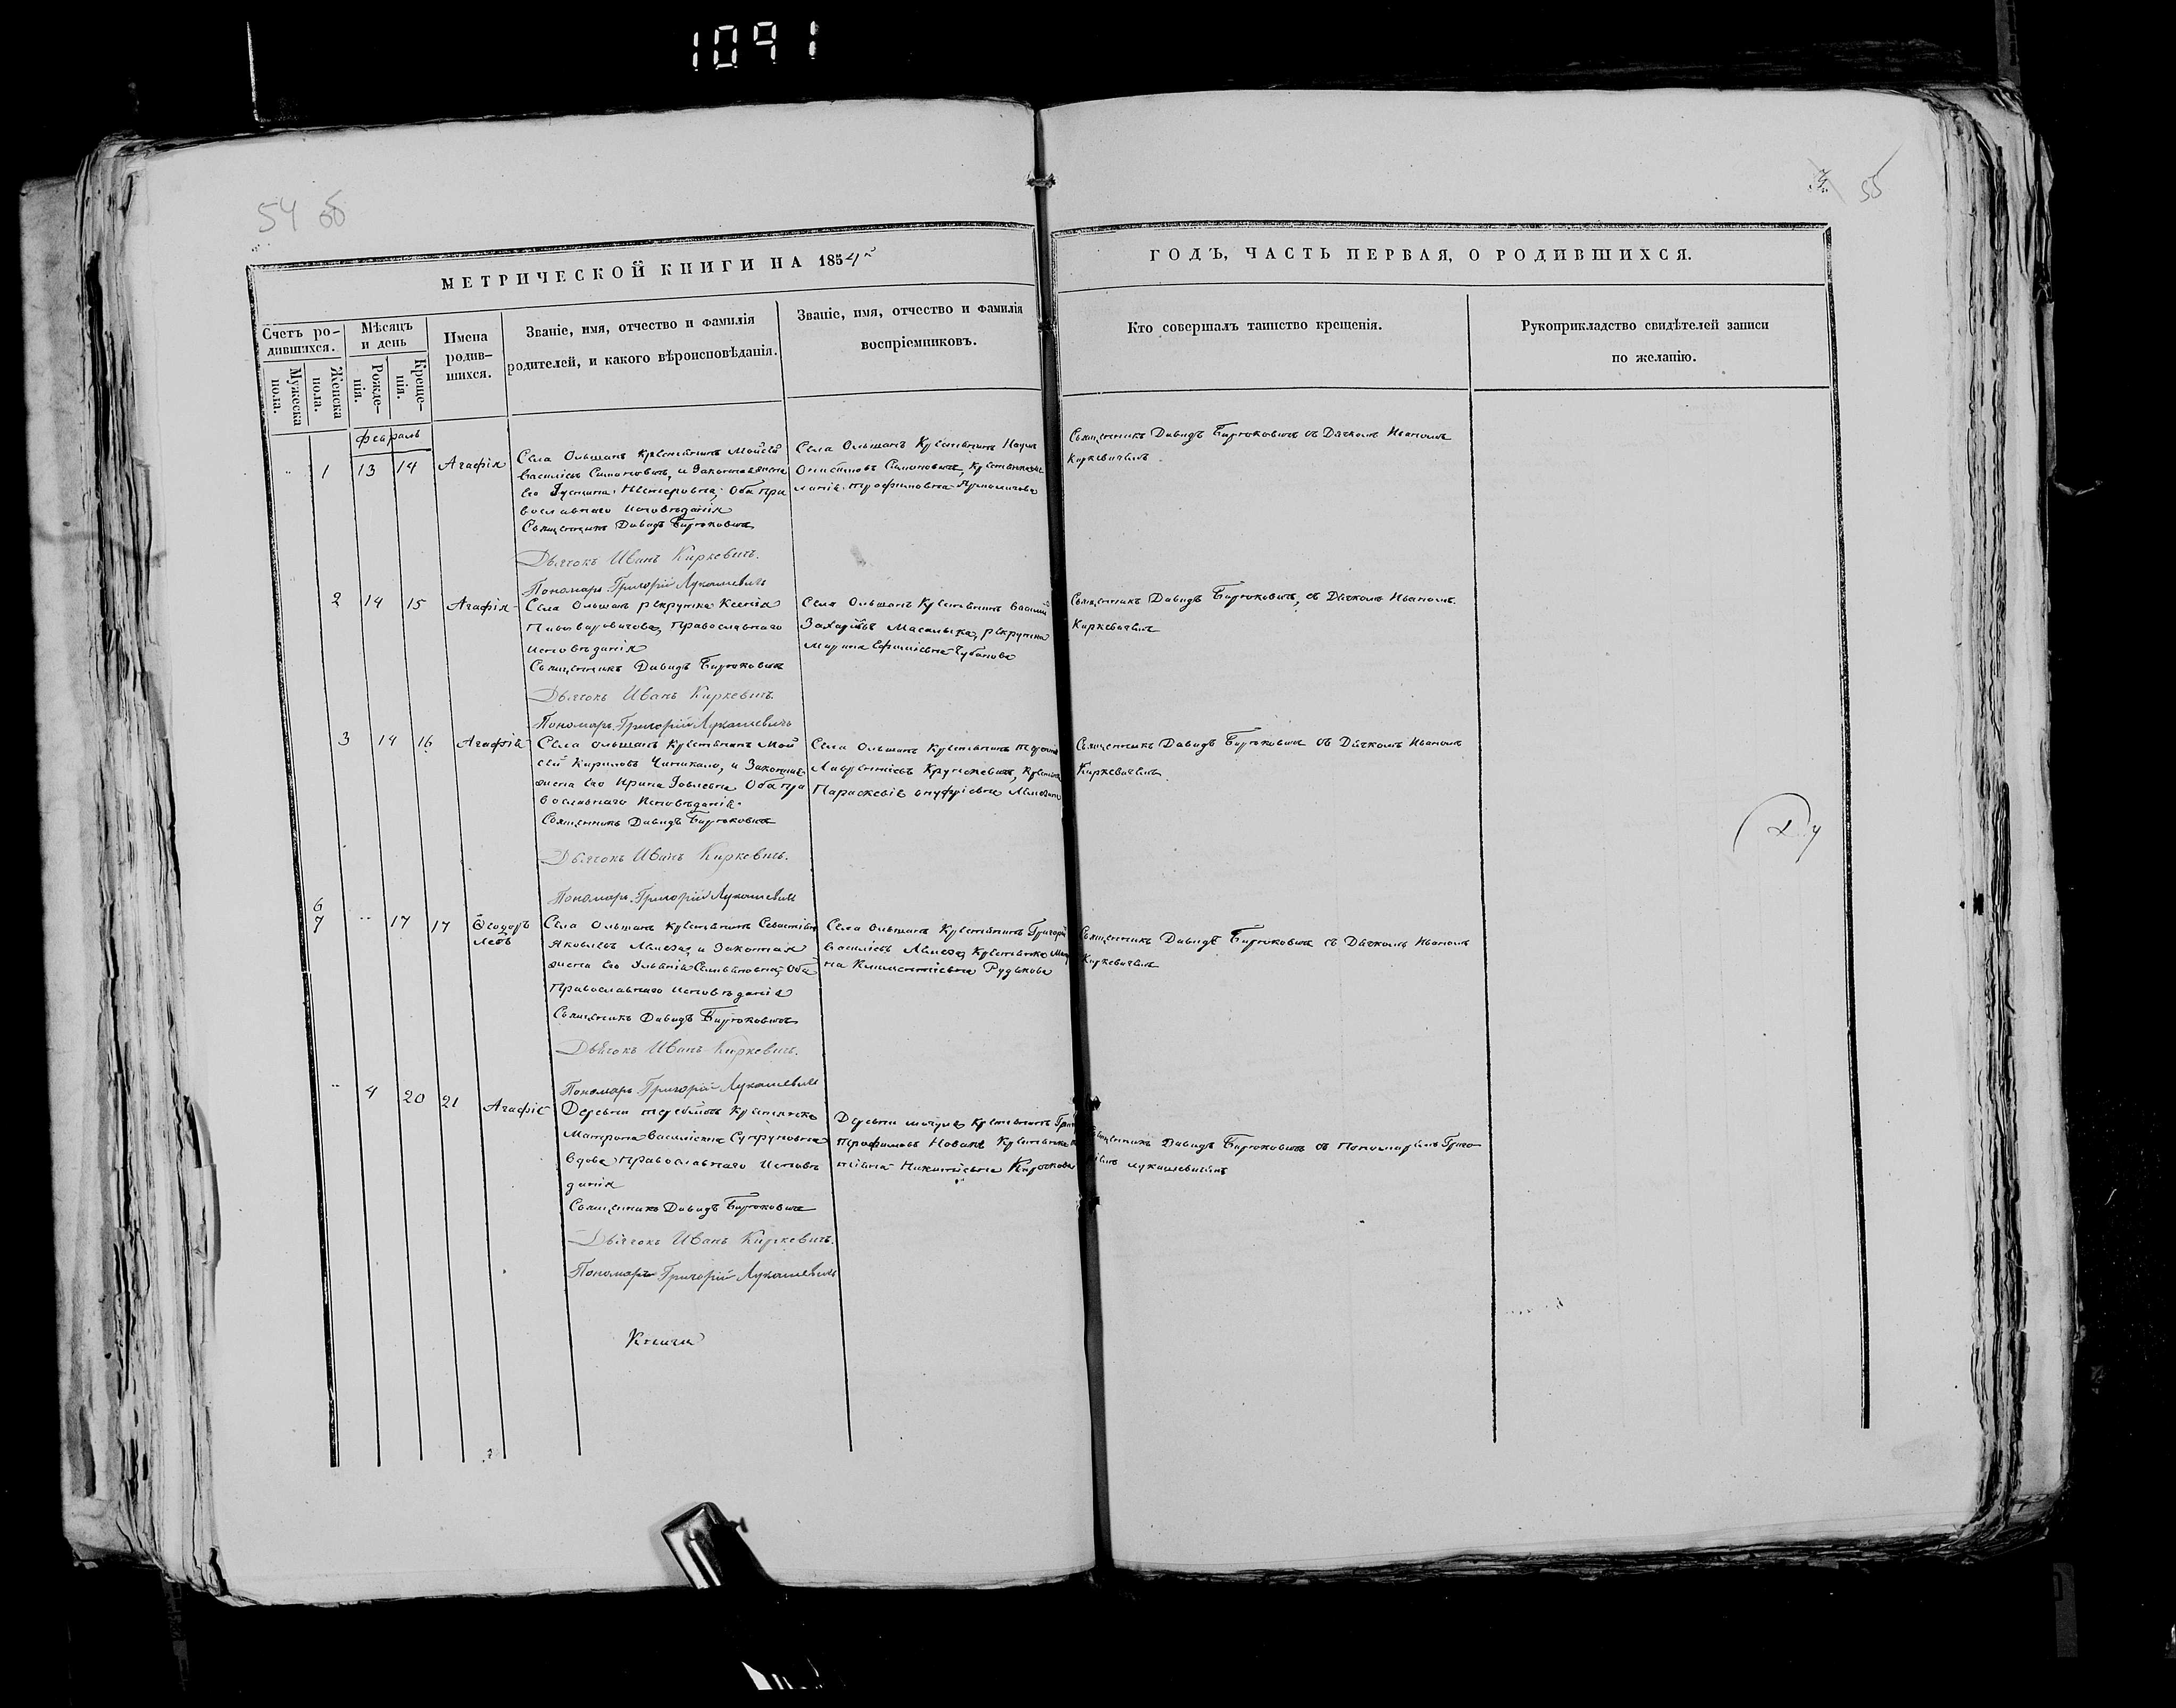 1091
54 об
55
МЕТРИЧЕСКОЙ КНИГИ НА 1854й
ГОДЪ, ЧАСТЬ ПЕРВАЯ, О РОДИВШИХСЯ.
Счетъ ро-
дившихся.
Мужеска
пола.
Женска
пола.
Мѣсяцъ
и день
Рожде-
нія.
Креще-
нія.
Имена
родив-
шихся.
Званіе, имя, отчество и фамилія
родителей, и какого вѣроисповѣданія.
Званіе, имя, отчество и фамилія
воспріемниковъ.
Кто совершалъ таинство крещенія.
Рукоприкладство свидѣтелей записи
по желанію.
февраль
1 13 14 Агафія
Села Ольшанъ Крестьянинъ Мойсей
Василіевъ Симоновичъ, и Законная жена
его Іустина Нестеровна, Оба пра
вославнаго исповѣданія
Священникъ Давидъ Бирюковичъ
Дьячокъ Иванъ Киркевичъ.
Пономарь Григорій Лукашевичъ
Села Ольшанъ Крестьянинъ Наумъ
Симоновичъ, Крестьянка
Трофимовна
Священникъ Давидъ Бирюковичъ съ Дячкомъ Иваномъ
Киркевичемъ
2 14 15 Агафія
Села Ольшанъ рекрутка Ксенія
Пивоваровичова, Православнаго
исповѣданія
Священникъ Давидъ Бирюковичъ
Дьячокъ Иванъ Киркевичъ.
Пономарь Григорій Лукашевичъ
Села Ольшанъ Крестьянинъ Василій
Захаріевъ Масалыка, рекрутка
Марина Ефиміевна Чубанова
Священникъ Давидъ Бирюковичъ, съ Дячкомъ Иваномъ
Киркевичемъ
3 14 16 Агафія
Села Ольшанъ Крестьянинъ Мой
сей Кириловъ Чипикало, и Законная
жена его Ирина Іовлевна Оба пра
вославнаго Исповѣданія
Священникъ Давидъ Бирюковичъ
Дьячокъ Иванъ Киркевичъ.
Пономарь Григорій Лукашевичъ
Села Ольшанъ Крестьянинъ
Лаврентіевъ Крупкевичъ, Крестьянка
Параскевія Онуфріевна
Священникъ Давидъ Бирюковичъ съ Дячкомъ Иваномъ
Киркевичемъ
6
7 17 17 Ѳеодоръ
Села Ольшанъ Крестьянинъ Севастіянъ
Яковлевъ и Законная
жена его Ульянія Семеновна, Оба
Православнаго Исповѣданія
Священникъ Давидъ Бирюковичъ
Дьячокъ Иванъ Киркевичъ.
Пономарь Григорій Лукашевичъ
Села Ольшанъ Крестьянинъ Григорій
Василіевъ Крестьянка
на Климентіевна Рудькова
Священникъ Давидъ Бирюковичъ съ Дячкомъ Иваномъ
Киркевичемъ
4 20 21 Агафія
Деревни Теребличъ Крестьянка
Матрона Василіевна Супруновна
вдова Православнаго Исповѣ
данія
Священникъ Давидъ Бирюковичъ
Дьячокъ Иванъ Киркевичъ.
Пономарь Григорій Лукашевичъ
Деревни Крестьянинъ
Трофимовъ Новакъ Крестьянка
Никитіевна
Священникъ Давидъ Бирюковичъ съ Пономаремъ Григо
ріемъ Лукашевичемъ
Книги